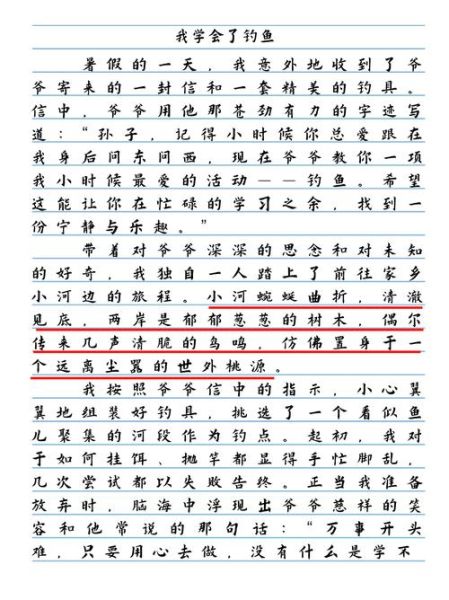 我学会了钓鱼
暑假的一天，我意外地收到了爷
爷寄来的一封信和一套精美的钓具。
信中，爷爷用他那苍劲有力的字迹写
道：“孙子，记得小时候你总爱跟在
我身后问东问西，现在爷爷教你一项
我小时候最爱的活动——钓鱼。希望
这能让你在忙碌的学习之余，找到一
份宁静与乐趣。”
带着对爷爷深深的思念和对未知
的好奇，我独自一人踏上了前往家乡
小河边的旅程。小河蜿蜒曲折，清澈
见底，两岸是郁郁葱葱的树木，偶尔
传来几声清脆的鸟鸣，仿佛置身于一
个远离尘嚣的世外桃源。
我按照爷爷信中的指示，小心翼
翼地组装好钓具，挑选了一个看似鱼
儿聚集的河段作为钓点。起初，我对
于如何挂饵、抛竿都显得手忙脚乱，
几次尝试都以失败告终。正当我准备
放弃时，脑海中浮现出爷爷慈祥的笑
容和他常说的那句话：“万事开头
难，只要用心去做，没有什么是学不